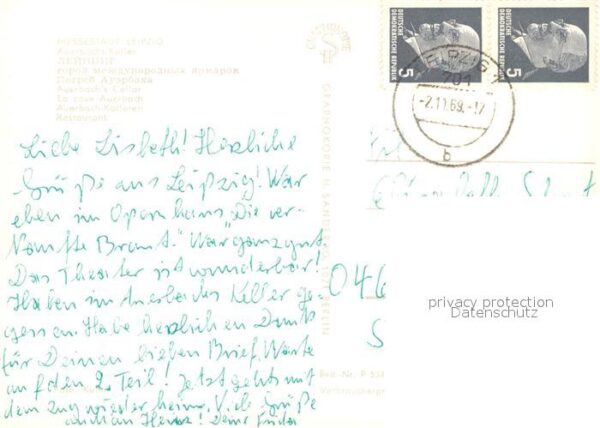 MESSESTADT LEIPZIG
Auerbachs Keller
ЛЕЙПЦИГ
город международных ярмарок
Погреб Ауэрбаха
Auerbach's Cellar
La cave Auerbach
Auerbach-Källaren
Restaurant
Liebe Lisbeth! Herzliche
Grüße aus Leipzig! War
eben im Opernhaus „Die ver-
kaufte Braut." War ganz gut.
Das Theater ist wunderbar!
Haben in Auerbachs Keller ge-
gessen. Habe herzlichen Dank
für Deinen lieben Brief. Warte
auf den 2. Teil! Jetzt gehts mit
dem Zug wieder heim. Viele Grüße
Deine
DEUTSCHE
DEMOKRATISCHE
REPUBLIK
5
DEUTSCHE
DEMOKRATISCHE
REPUBLIK
5
LEIPZIG
701
-2.11.69.-17
b
046
S
privacy protection
Datenschutz
Best.-Nr. P
Verbraucherpr